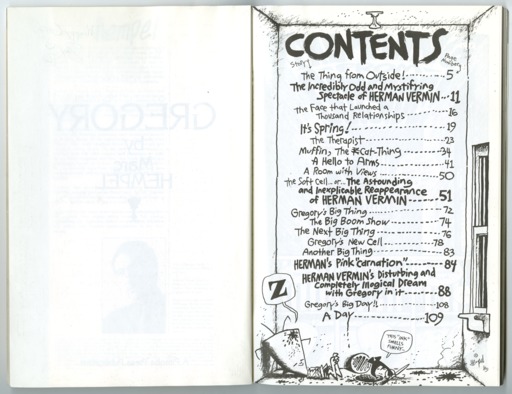 CONTENTS
Story!
Page Numbers
The Thing from Outside! 5
The Incredibly Odd and Mystifying
Spectacle of HERMAN VERMIN 11
The Face that Launched a
Thousand Relationships 16
It's Spring! 19
The Therapist 23
Muffin, The Cat-Thing 34
A Hello to Arms 41
A Room with Views 50
The Soft Cell...or...The Astounding
and Inexplicable Reappearance
of HERMAN VERMIN 51
Gregory's Big Thing 72
The Big Boom Show 74
The Next Big Thing 76
Gregory's New Cell 78
Another Big Thing 83
HERMAN's Pink "Carnation" 84
HERMAN VERMIN's Disturbing and
Completely Illogical Dream
with Gregory in it 88
Gregory's Big Day!! 108
A Day 109
Z
THIS "INK"
SMELLS
FUNNY..
GREGORY
by
Marc
HEMPEL